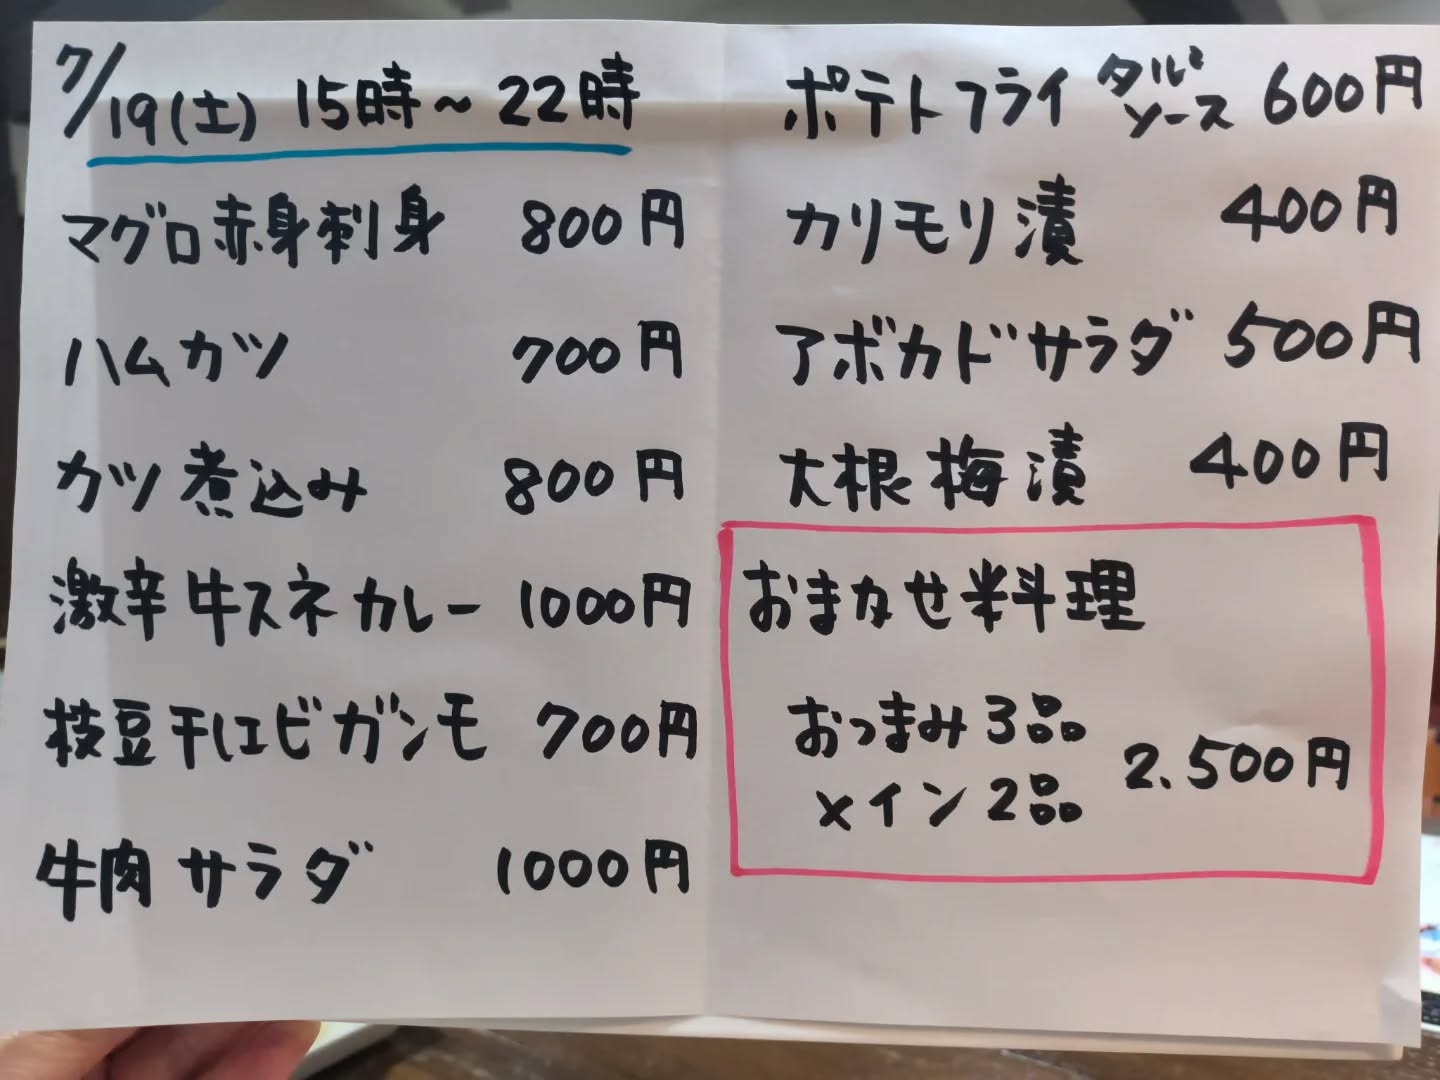 7/19(土) 15時～22時
マグロ赤身刺身 800円
ハムカツ 700円
カツ煮込み 800円
激辛牛スネカレー 1000円
枝豆干しエビガンモ 700円
牛肉サラダ 1000円
ポテトフライ タルソース 600円
カリモリ漬 400円
アボカドサラダ 500円
大根梅漬 400円
おまかせ料理
おつまみ3品
メイン2品 2.500円